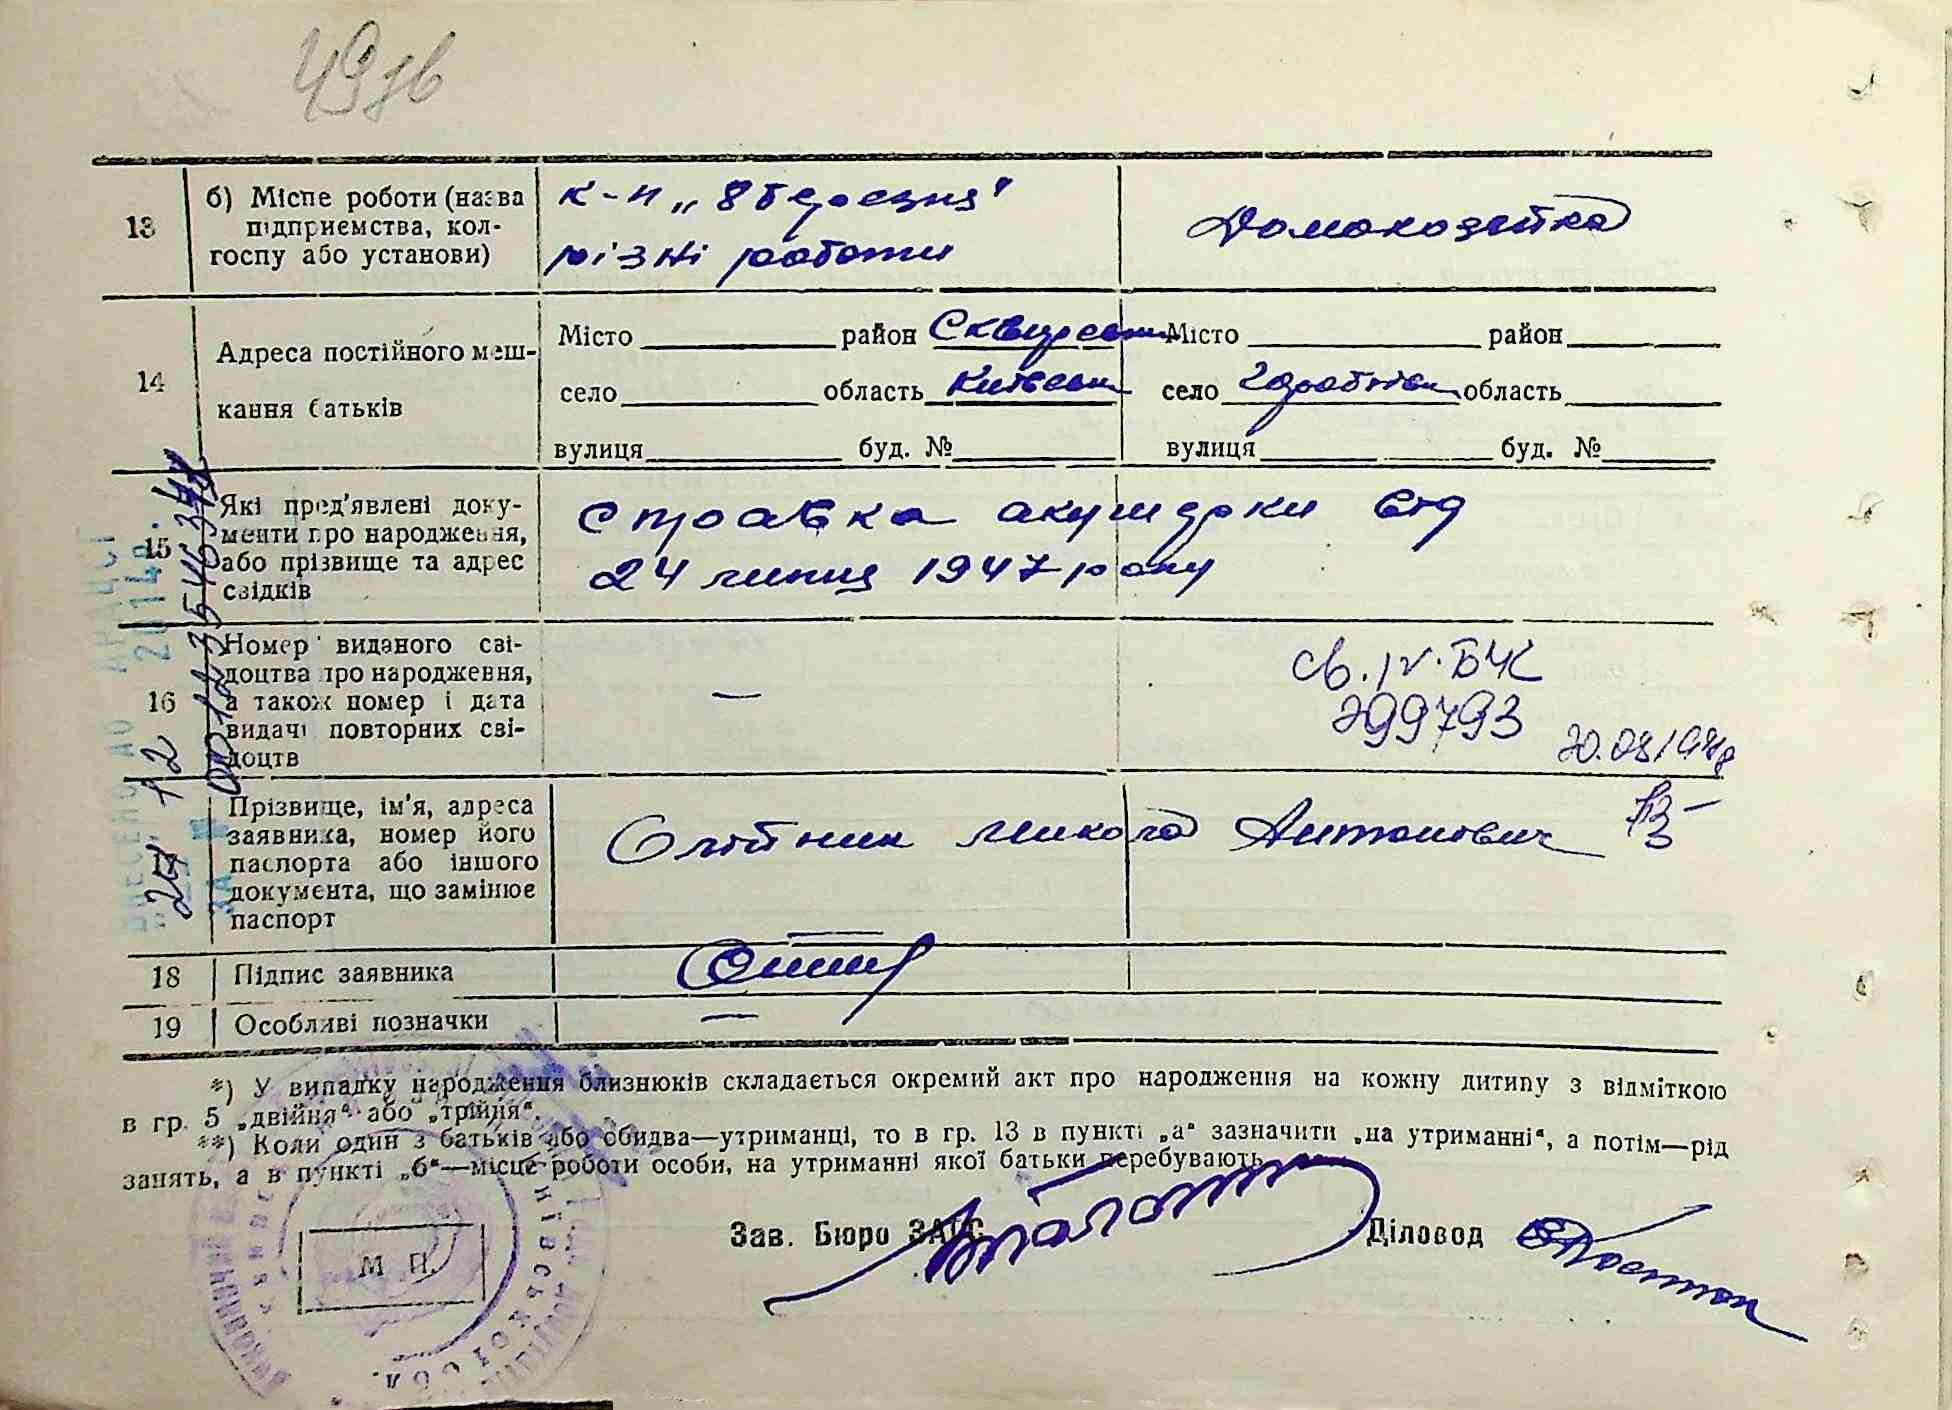 49зв
13
б) Місце роботи (назва
підприємства, кол-
госпу або установи)
к-п „8 березня"
різні роботи
Домохозяйка
14
Адреса постійного меш-
кання батьків
Місто район Сквирськ
село область Київськ
вулиця буд. №
Місто район
село область
вулиця буд. №
15
Які пред'явлені доку-
менти про народження,
або прізвище та адрес
свідків
Справка акушерки від
24 липня 1947 року
16
Номер виданого сві-
доцтва про народження,
а також номер і дата
видачі повторних сві-
доцтв
—
св. IV-БЧК
299793
17
Прізвище, ім'я, адреса
заявника, номер його
паспорта або іншого
документа, що замінює
паспорт
Олійник Микола Антонович
18
Підпис заявника
19
Особливі позначки
—
*) У випадку народження близнюків складається окремий акт про народження на кожну дитину з відміткою
в гр. 5 „двійня“ або „трійня“.
**) Коли один з батьків або обидва—утриманці, то в гр. 13 в пункті „а“ зазначити „на утриманні“, а потім—рід
занять, а в пункті „б“—місце роботи особи, на утриманні якої батьки перебувають.
Зав. Бюро ЗАГС
Діловод
М П.